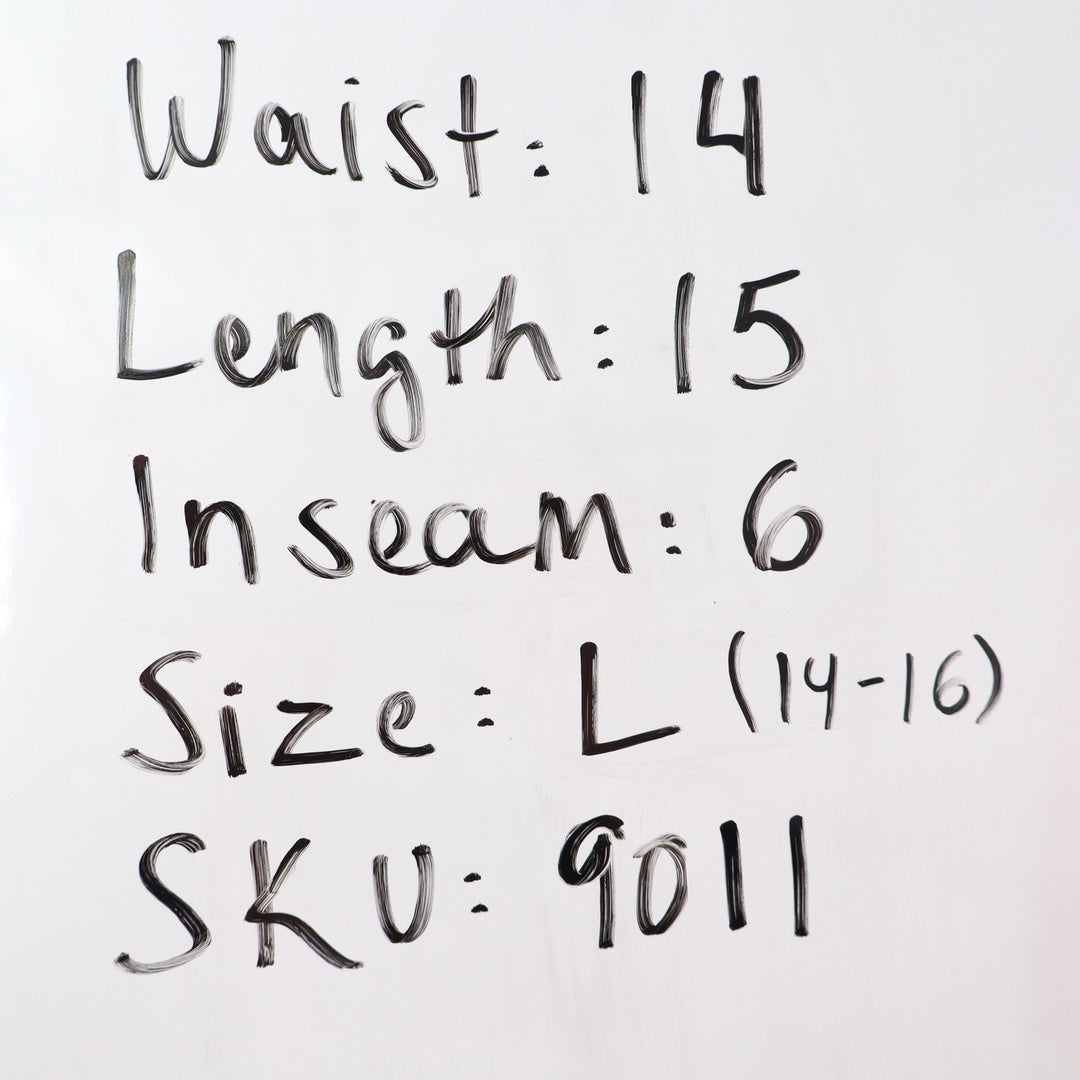 Waist: 14
Length: 15
Inseam: 6
Size: L (14-16)
SKU: 9011